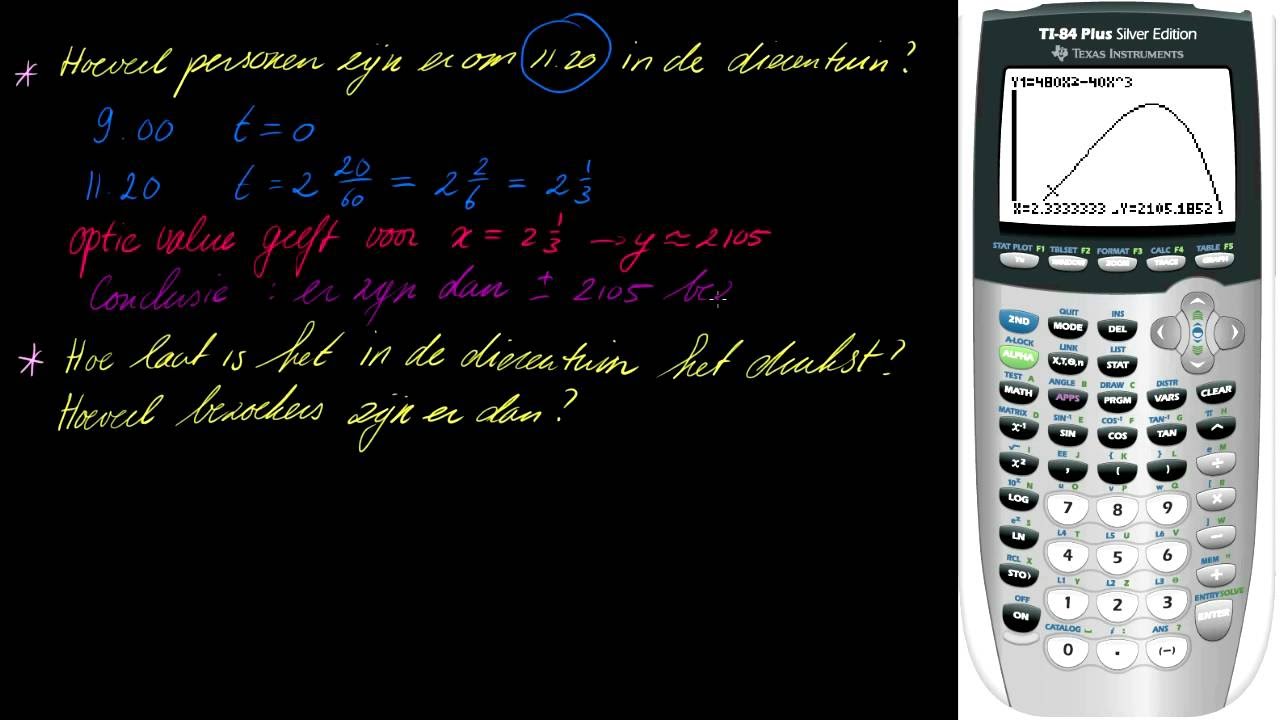 * Hoeveel personen zijn er om 11.20 in de dierentuin?
9.00 t = 0
11.20 t = 2 20/60 = 2 2/6 = 2 1/3
optie value geeft voor x = 2 1/3 → y ≈ 2105
Conclusie : er zijn dan ± 2105 bez
* Hoe laat is het in de dierentuin het drukst?
Hoeveel bezoekers zijn er dan?
TI-84 Plus Silver Edition
TEXAS INSTRUMENTS
Y1=480X²-40X^3
X=2.3333333 Y=2105.1852
STAT PLOT F1 TBLSET F2 FORMAT F3 CALC F4 TABLE F5
Y= WINDOW ZOOM TRACE GRAPH
QUIT INS
2ND MODE DEL
A-LOCK LINK LIST
ALPHA X,T,Θ,n STAT
TEST A ANGLE B DRAW C DISTR
MATH APPS PRGM VARS CLEAR
MATRIX D SIN⁻¹ E COS⁻¹ F TAN⁻¹ G π H
x⁻¹ SIN COS TAN ^
√ I EE J { K } L e M
x² , ( ) ÷
10ˣ N u O v P w Q [ R
LOG 7 8 9 ×
eˣ S L4 T L5 U L6 V ] W
LN 4 5 6 −
RCL X L1 Y L2 Z L3 θ MEM "
STO› 1 2 3 +
OFF CATALOG ⎵ i : ANS ? ENTRY SOLVE
ON 0 . (−) ENTER